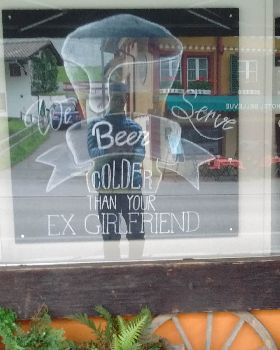 We Serve
Beer
COLDER
THAN YOUR
EX GIRLFRIEND